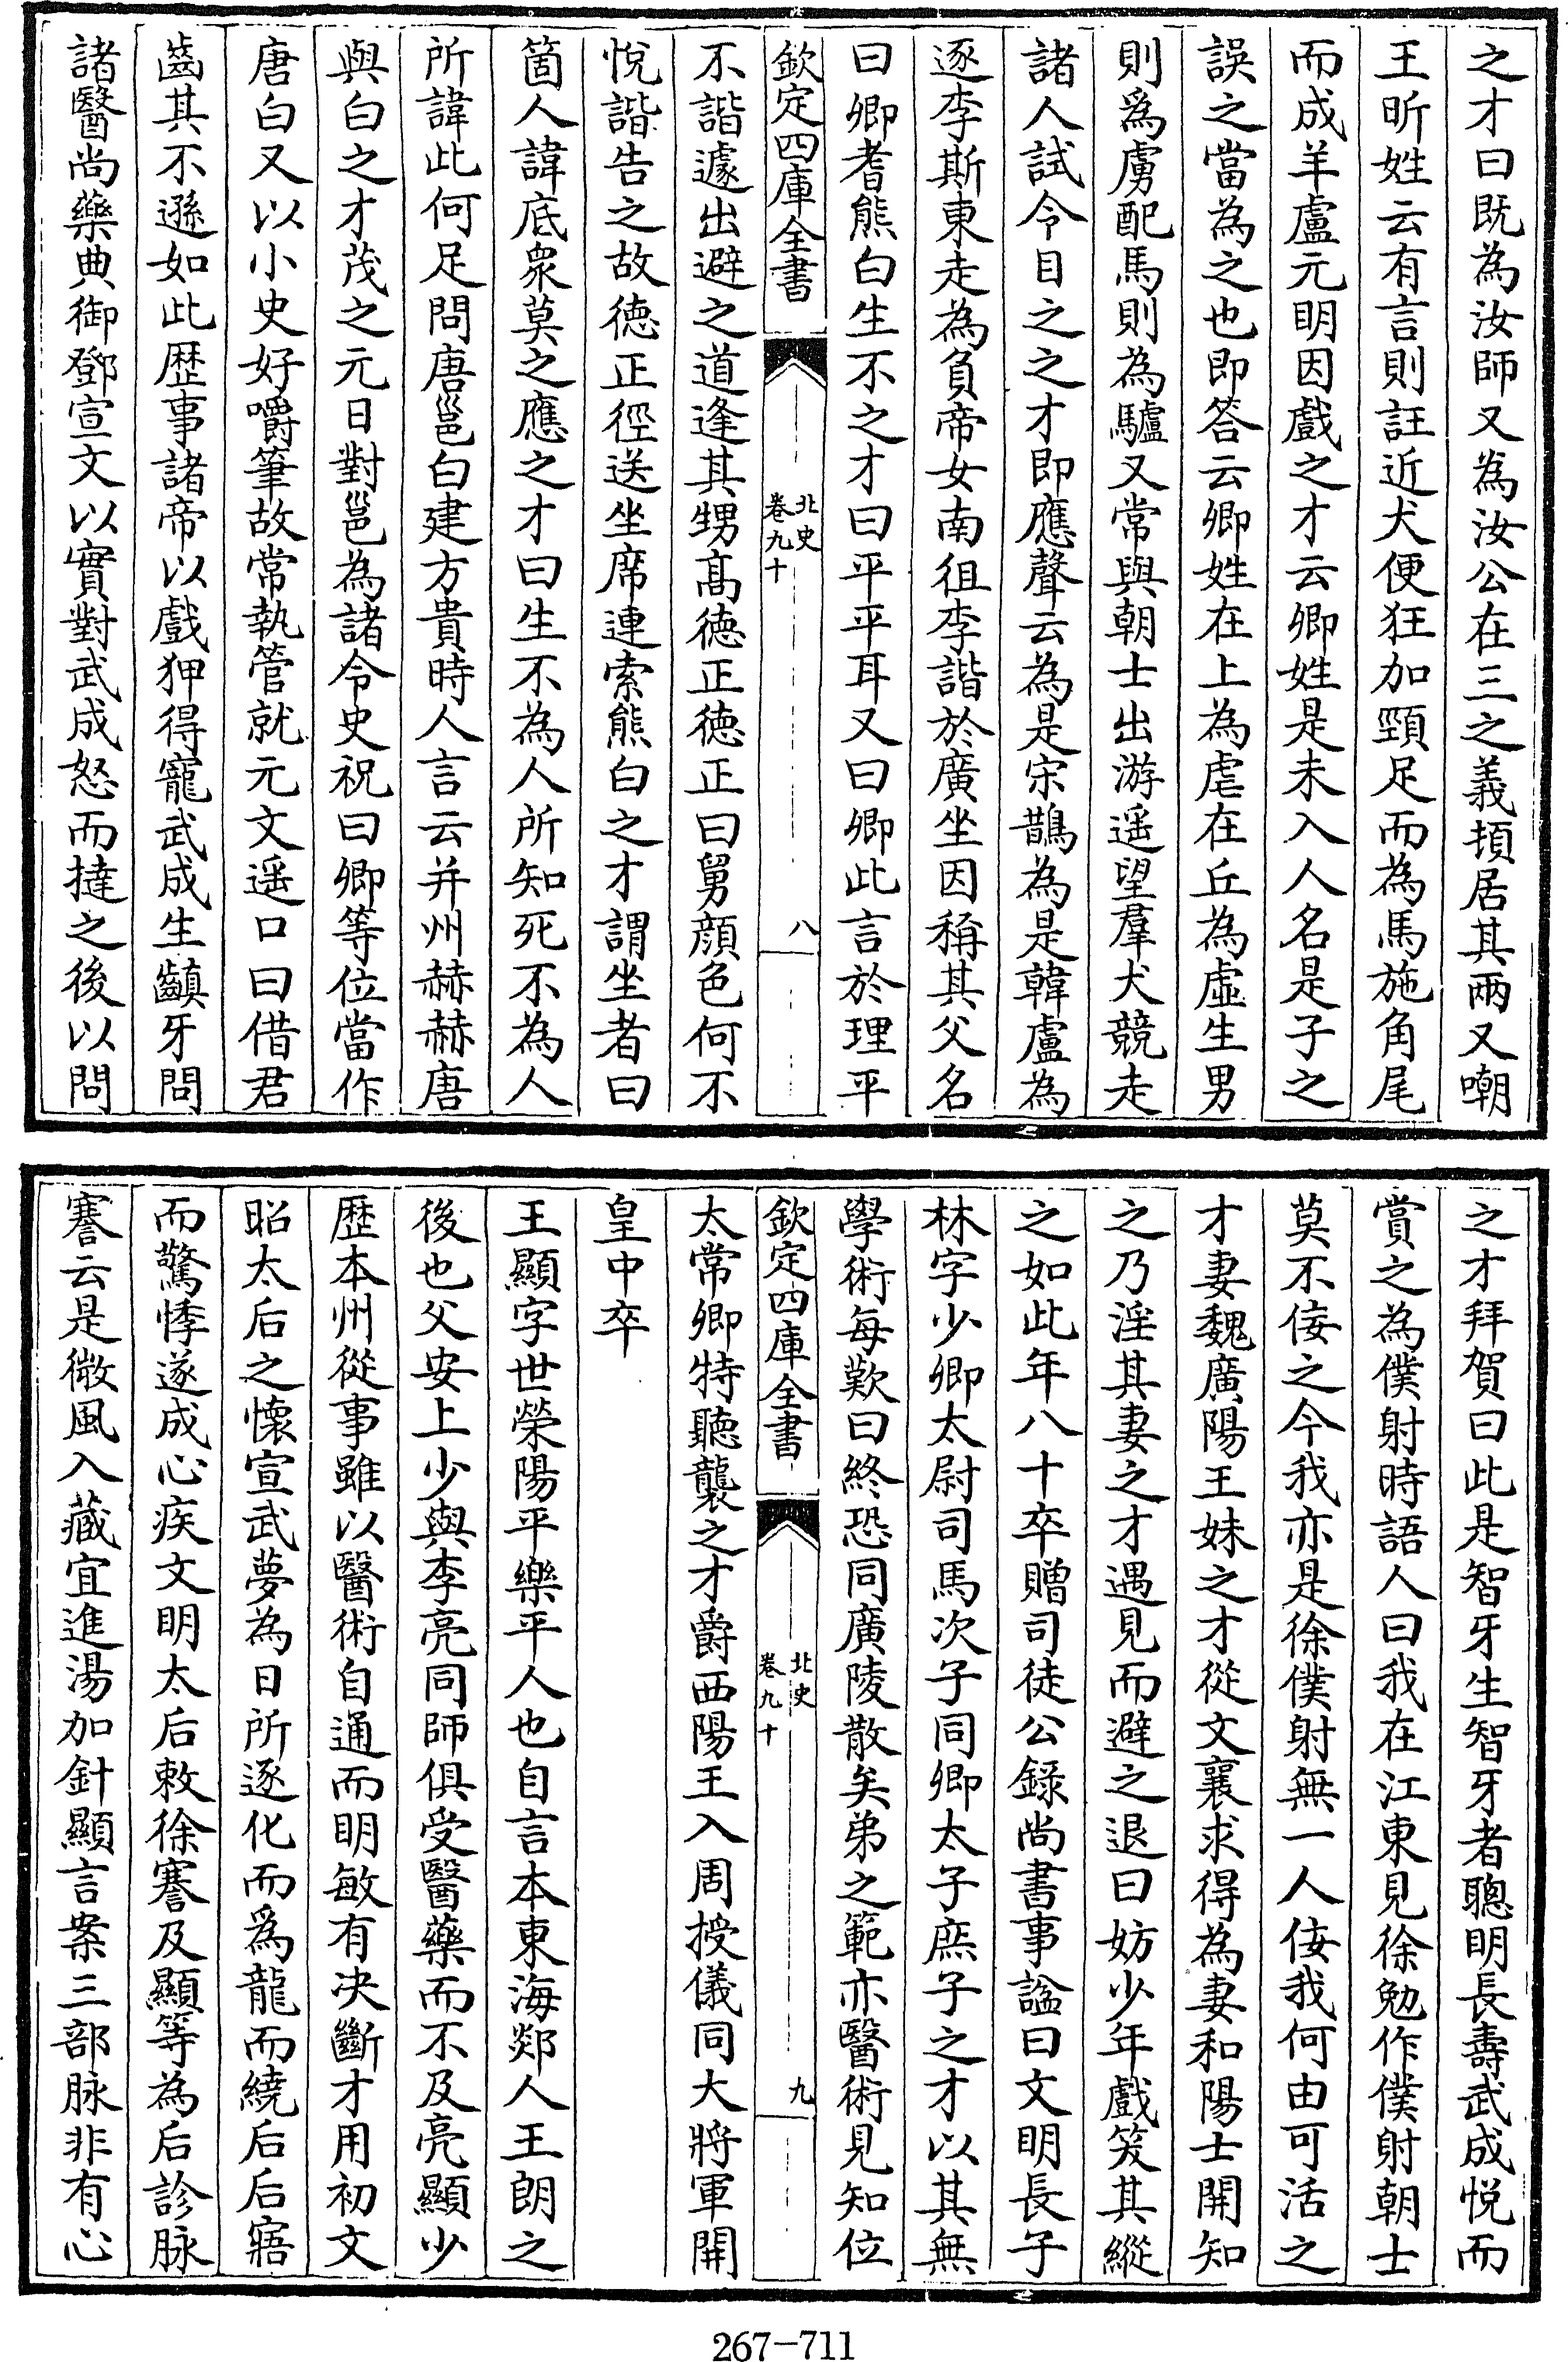 之才曰既為汝師又為汝公在三之義頓居其兩又嘲
王昕姓云有言則詿近犬便狂加頸足而為馬施角尾
而成羊盧元明因戲之才云卿姓是未入人名是子之
誤之當為之也即答云卿姓在上為虐在丘為虛生男
則爲虜配馬則為驢又常與朝士出游遥望羣犬競走
諸人試令目之之才即應聲云為是宋鵲為是韓盧為
逐李斯東走為負帝女南徂李諧於廣坐因稱其父名
曰卿耆熊白生不之才曰平平耳又曰卿此言於理平
欽定四庫全書
北史
卷九十
八
不諧遽出避之道逢其甥髙徳正徳正曰舅顔色何不
悅諧告之故徳正徑送坐席連索熊白之才謂坐者曰
箇人諱底衆莫之應之才曰生不為人所知死不為人
所諱此何足問唐邕白建方貴時人言云并州赫赫唐
與白之才茂之元日對邕為諸令史祝曰卿等位當作
唐白又以小史好嚼筆故常執管就元文遥口曰借君
齒其不遜如此歴事諸帝以戲狎得寵武成生齻牙問
諸醫尚藥典御鄧宣文以實對武成怒而撻之後以問
之才拜賀曰此是智牙生智牙者聰明長壽武成悅而
賞之為僕射時語人曰我在江東見徐勉作僕射朝士
莫不佞之今我亦是徐僕射無一人佞我何由可活之
才妻魏廣陽王妹之才從文襄求得為妻和陽士開知
之乃淫其妻之才遇見而避之退曰妨少年戲笑其縱
之如此年八十卒贈司徒公録尚書事諡曰文明長子
林字少卿太尉司馬次子同卿太子庶子之才以其無
學術每歎曰終恐同廣陵散矣弟之範亦醫術見知位
欽定四庫全書
北史
卷九十
九
太常卿特聽襲之才爵西陽王入周授儀同大將軍開
皇中卒
王顯字世榮陽平樂平人也自言本東海郯人王朗之
後也父安上少與李亮同師俱受醫藥而不及亮顯少
歴本州從事雖以醫術自通而明敏有决斷才用初文
昭太后之懷宣武夢為日所逐化而爲龍而繞后后寤
而驚悸遂成心疾文明太后敕徐謇及顯等為后診脉
謇云是微風入藏宜進湯加針顯言案三部脉非有心
267-711